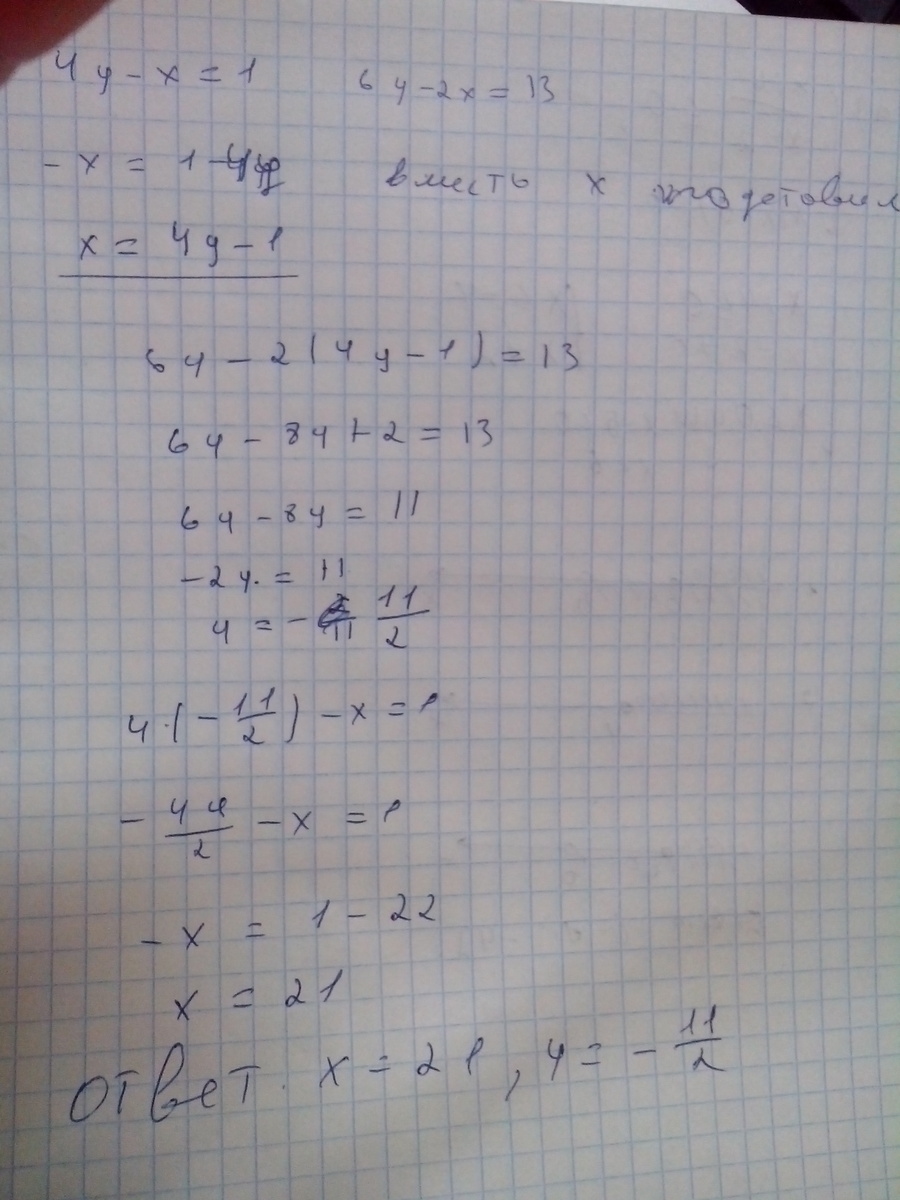 4y - x = 1 6y - 2x = 13
- x = 1 - 4y вместь x
x = 4y - 1
6y - 2(4y - 1) = 13
6y - 8y + 2 = 13
6y - 8y = 11
-2y. = 11
y = - 11/2
4·(- 11/2) - x = 1
- 44/2 - x = 1
- x = 1 - 22
x = 21
Ответ. x = 21, y = - 11/2